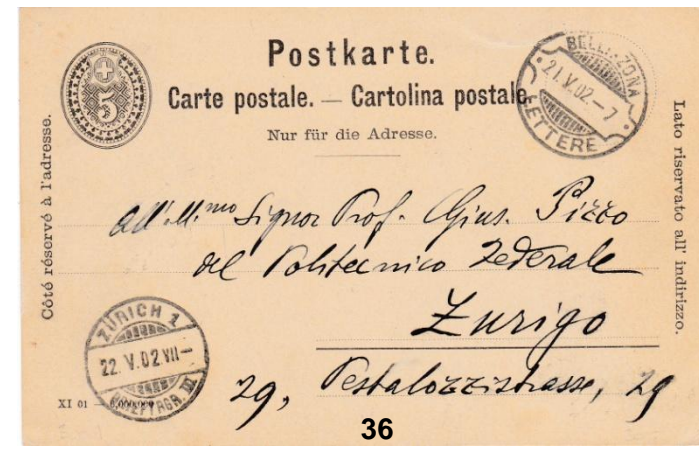 Postkarte.
Carte postale. — Cartolina postale.
Nur für die Adresse.
5
BELLINZONA
21.V.02.-7
LETTERE
Côté réservé à l'adresse.
Lato riservato all' indirizzo.
All'Ill.mo Signor Prof. Gius. Pizzo
del Politecnico Federale
Zurigo
29, Pestalozzistrasse, 29
ZÜRICH 1
22.V.02.VII-
XI 01 —
36